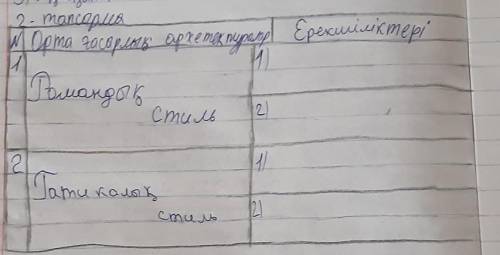 2 - тапсарма
№ Орта ғасарлық архетектуралар Ерекшіліктері
1 1)
Романдық
стиль 2)
2 1)
Готикалық
стиль 2)